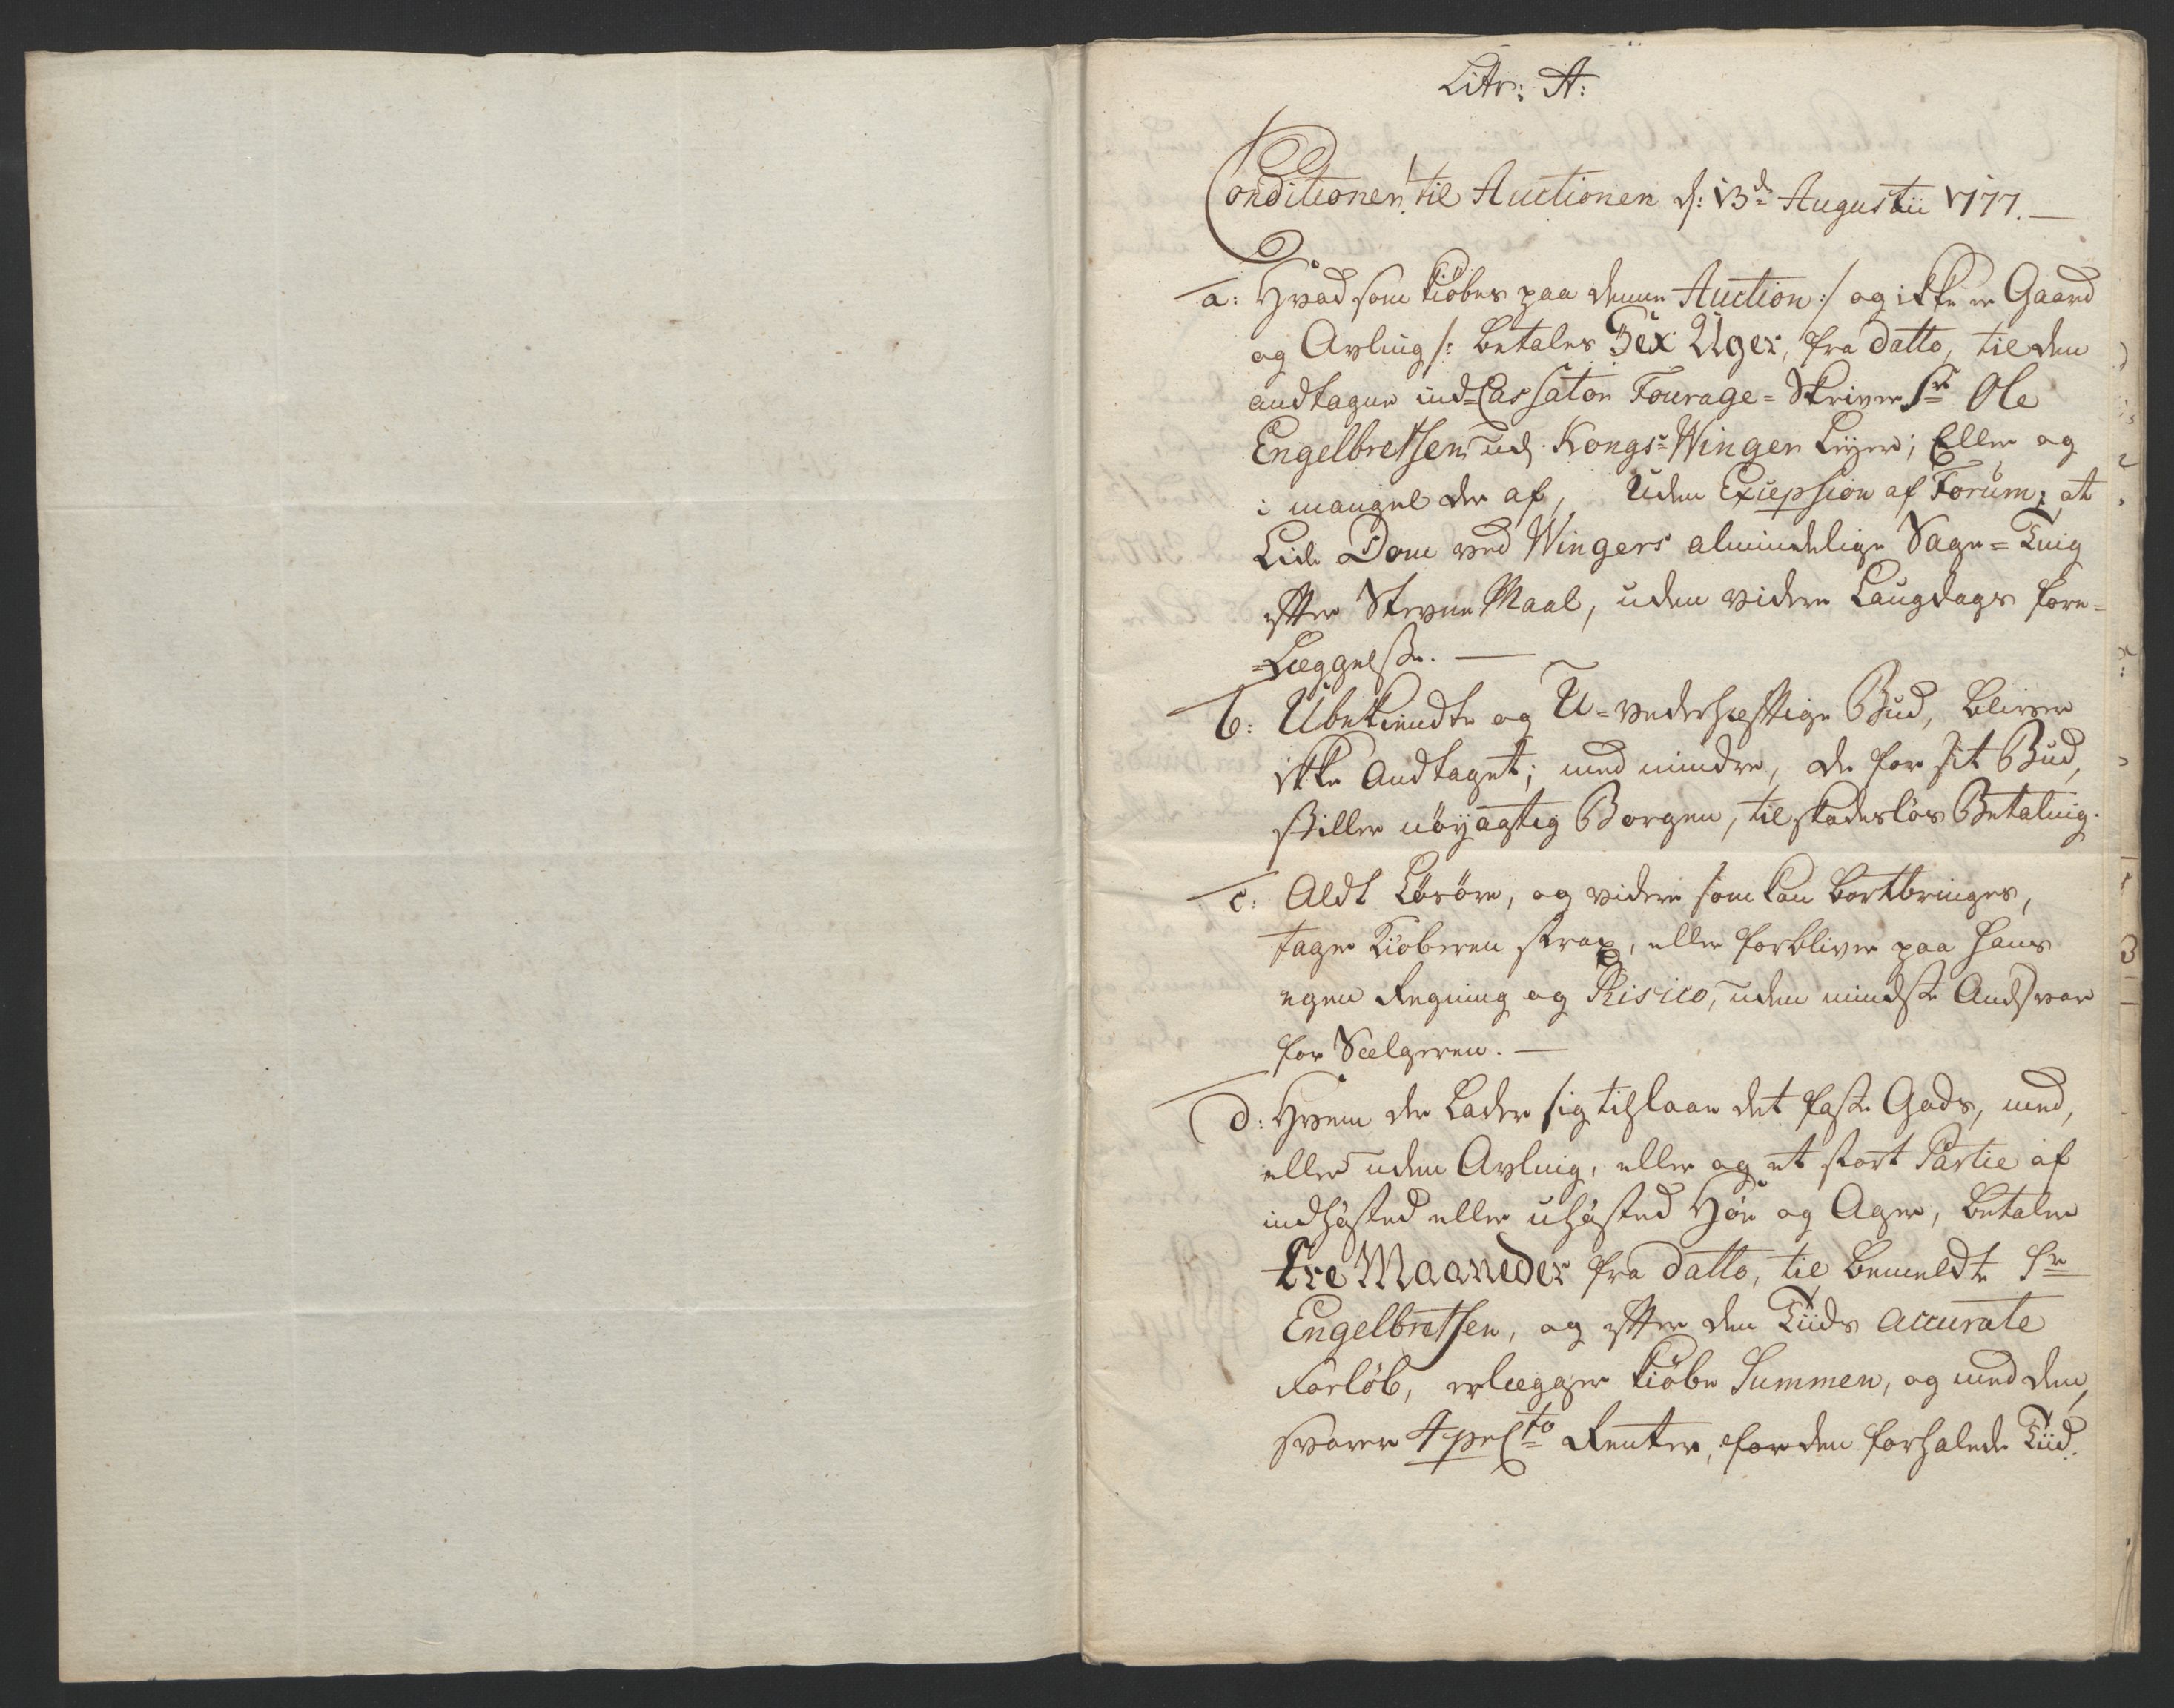 Litr: A:
Conditioner til Auctionen d: 13de Augustii 1777. —
a: Hvad som kiöbes paa denne Auction :/ og ikke er Gaard
og Avling /: betales Sex Uger, fra datto, til den
andtagne ind-Cassator Fourage-Skriver Sr Ole
Engelbretsen ud Kongs-Winger Leyer; Eller og
i mangel der af, Uden Exiepsion af Forum; at
Lide Dom ved Wingers almindelige Sage-Ting
efter Stevne Maal, uden videre Laugdags fore-
=Læggelse. —
b: Ubekiendte og U-vederhæftige Bud, bliver
ikke Andtaget; med mindre, de for sit Bud,
stiller nöyagtig Borgen, til skadeslös Betaling.
c: Aldt Lösöre, og videre som kan bortbringes,
tager Kiöberen strax, eller forbliver paa hans
egen Regning og Risico, uden mindste Andsvar
for Sælgeren. —
d: Hvem der Lader sig tilslaae det faste Gods, med,
eller uden Avling, eller og et stort Partie af
indhösted eller uhösted Höe og Ager, betaler
tre Maaneder fra datto, til bemeldte Sr
Engelbretsen, og efter den Tiids accurate
Forlöb, erlægger kiöbe Summen, og med den,
svarer 4 prCto Renter, for den forhalede Tiid.